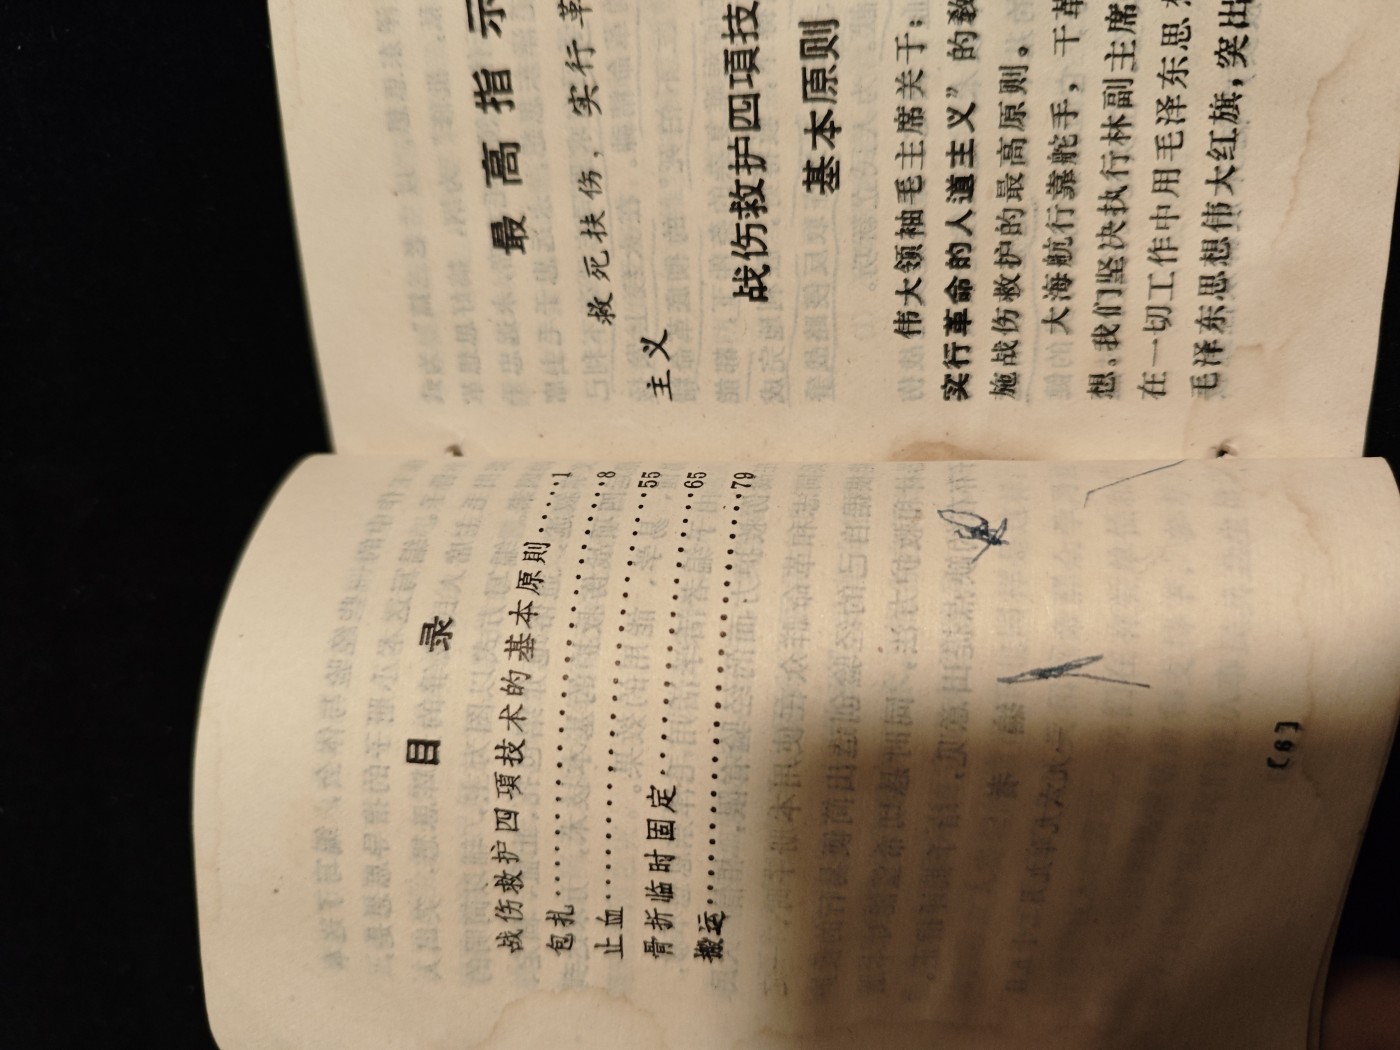 目 录
战伤救护四項技术的基本原則……1
包扎……8
止血……55
骨折临时固定……65
搬运……79
〔6〕
最 高 指 示
救死扶伤，实行革
主义
战伤救护四項技
基本原则
伟大领袖毛主席关于：
实行革命的人道主义”的教
施战伤救护的最高原则。
大海航行靠舵手，干革
想。我们坚决执行林副主席
在一切工作中用毛泽东思想
毛泽东思想伟大红旗，突出